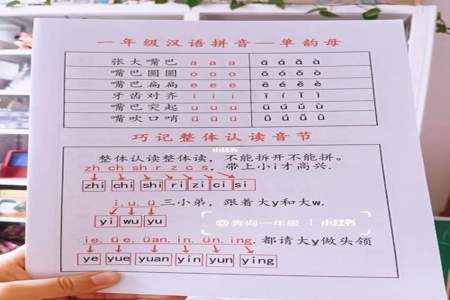 一年级汉语拼音—单韵母
张大嘴巴 a a a ā á ǎ à
嘴巴圆圆 o o o ō ó ǒ ò
嘴巴扁扁 e e e ē é ě è
牙齿对齐 i i i ī í ǐ ì
嘴巴突起 u u u ū ú ǔ ù
嘴吹口哨 ü ü ü ǖ ǘ ǚ ǜ
巧记整体认读音节
小红书
整体认读整体读，不能拆开不能拼。
zh ch sh r z c s, 带上小i才高兴.
zhi chi shi ri zi ci si
i. u. ü 三小弟，跟着大y和大w.
yi wu yu
@奔向一年级 | 小红书
ie. üe. üan. in. ün. ing. 都请大y做头领
ye yue yuan yin yun ying